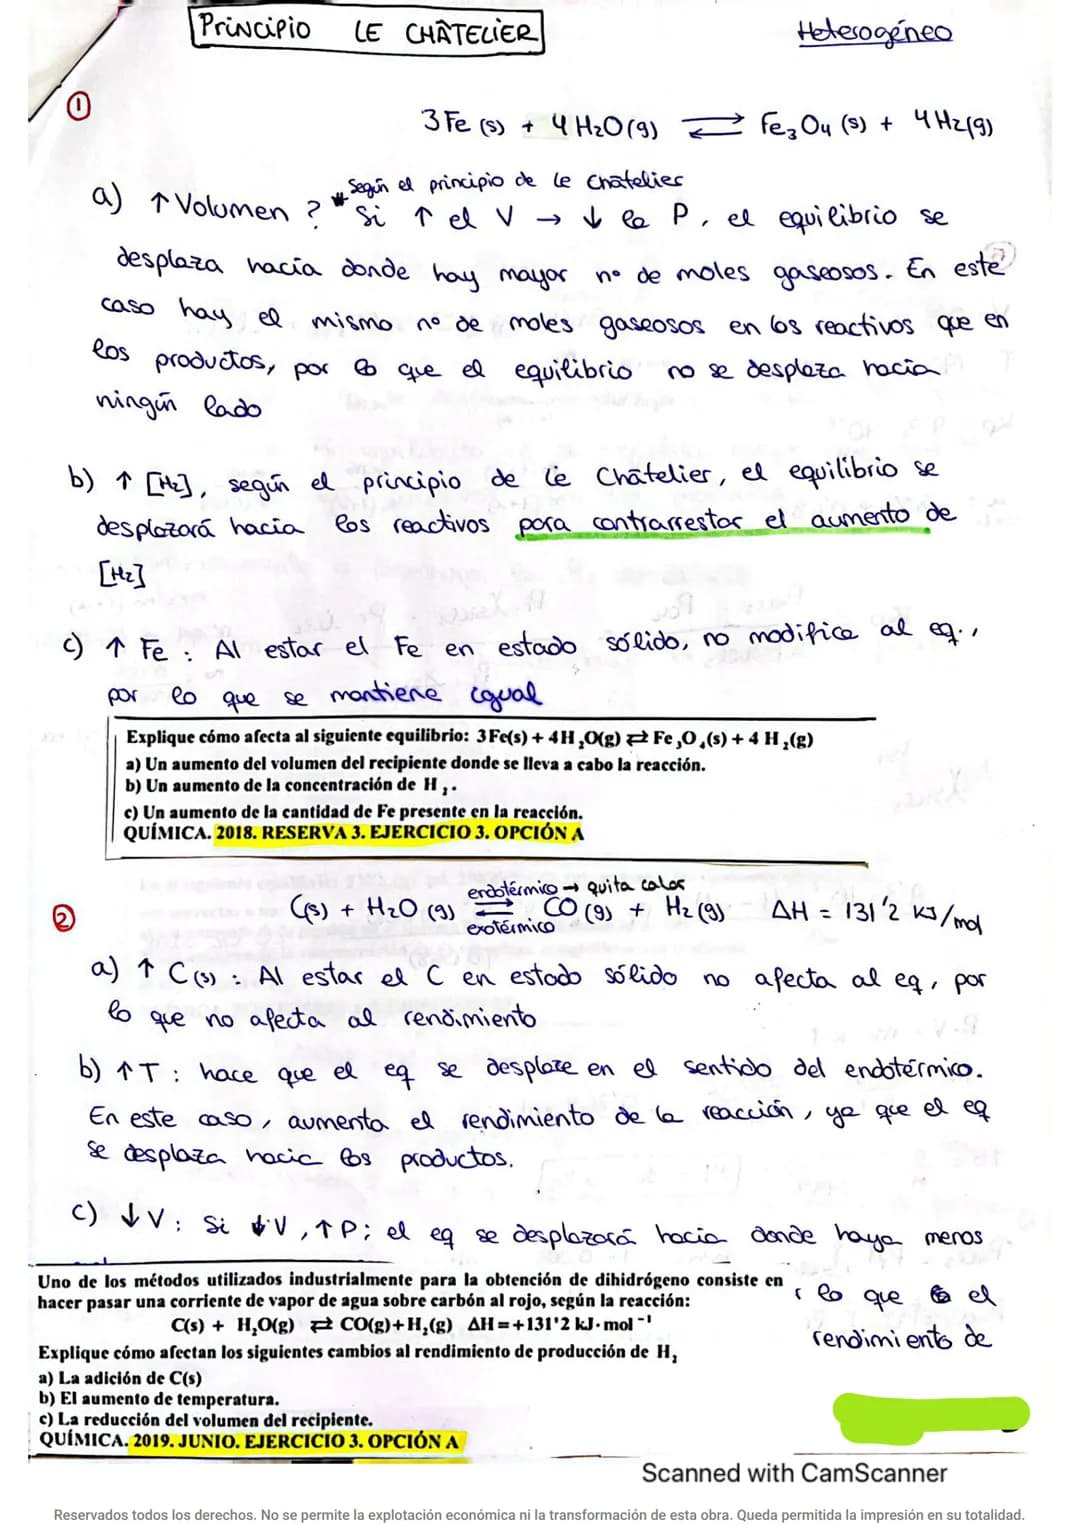 Principio LE CHÂTELIER
Heterogéneo
①
3 Fe (s) + 4 H₂O (g) ⇄ Fe₃O₄ (s) + 4 H₂(g)
Según el principio de Le Chatelier
a) ↑ Volumen ? * Si ↑ el V → ↓ la P, el equilibrio se
desplaza hacia donde hay mayor nº de moles gaseosos. En este
caso hay el mismo nº de moles gaseosos en los reactivos que en
los productos, por lo que el equilibrio no se desplaza hacia
ningún lado
b) ↑ [H₂], según el principio de Le Châtelier, el equilibrio se
desplazará hacia los reactivos para contrarrestar el aumento de
[H₂]
c) ↑ Fe : Al estar el Fe en estado sólido, no modifica al eq.,
por lo que se mantiene igual
Explique cómo afecta al siguiente equilibrio: 3Fe(s) + 4H₂O(g) ⇄ Fe₃O₄(s) + 4 H₂(g)
a) Un aumento del volumen del recipiente donde se lleva a cabo la reacción.
b) Un aumento de la concentración de H₂.
c) Un aumento de la cantidad de Fe presente en la reacción.
QUÍMICA. 2018. RESERVA 3. EJERCICIO 3. OPCIÓN A
endotérmico → quita calor
② C(s) + H₂O (g) ⇄ CO (g) + H₂ (g) ΔH = 131'2 kJ/mol
exotérmico
a) ↑ C (s) : Al estar el C en estado sólido no afecta al eq, por
lo que no afecta al rendimiento
b) ↑T : hace que el eq se desplaze en el sentido del endotérmico.
En este caso, aumenta el rendimiento de la reacción, ya que el eq
se desplaza hacia los productos.
c) ↓V : Si ↓V, ↑P; el eq se desplazará hacia donde haya menos
Uno de los métodos utilizados industrialmente para la obtención de dihidrógeno consiste en
hacer pasar una corriente de vapor de agua sobre carbón al rojo, según la reacción:
C(s) + H₂O(g) ⇄ CO(g)+H₂(g) ΔH=+131'2 kJ·mol⁻¹
Explique cómo afectan los siguientes cambios al rendimiento de producción de H₂
a) La adición de C(s)
b) El aumento de temperatura.
c) La reducción del volumen del recipiente.
QUÍMICA. 2019. JUNIO. EJERCICIO 3. OPCIÓN A
lo que el
rendimiento de
Scanned with CamScanner
Reservados todos los derechos. No se permite la explotación económica ni la transformación de esta obra. Queda permitida la impresión en su totalidad.